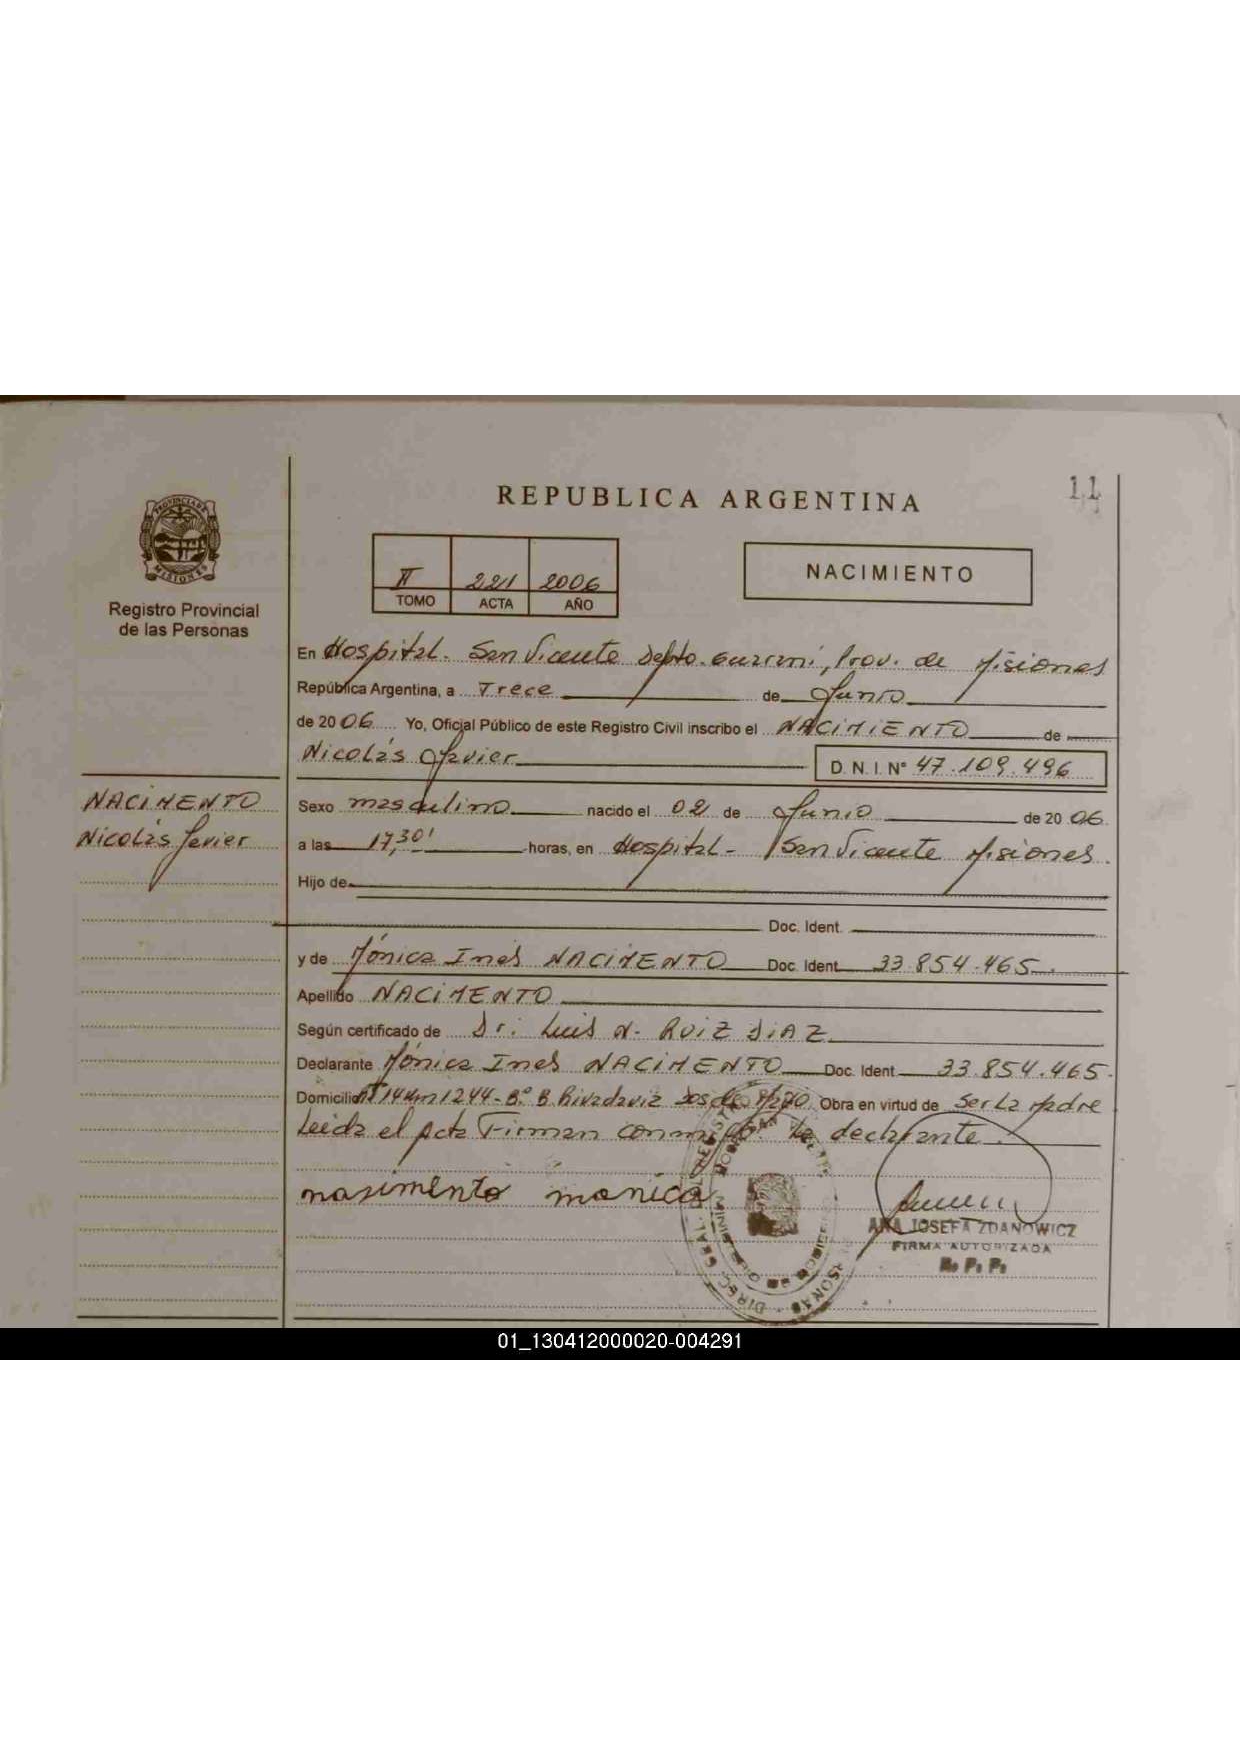 REPUBLICA ARGENTINA
11
PROVINCIA DE
MISIONES
Registro Provincial
de las Personas
II 221 2006
TOMO ACTA AÑO
NACIMIENTO
En Hospital. San Vicente Depto. Guaraní, Prov. de Misiones
República Argentina, a Trece de Junio
de 2006 Yo, Oficial Público de este Registro Civil inscribo el NACIMIENTO de
Nicolás Javier D.N.I. N° 47.109.496
NACIMENTO
Nicolás Javier
Sexo masculino nacido el 02 de Junio de 2006
a las 17,30' horas, en Hospital - San Vicente Misiones.
Hijo de
Doc. Ident.
y de Mónica Inés NACIMENTO Doc. Ident. 33.854.465.
Apellido NACIMENTO
Según certificado de Dr. Luis N. RUIZ DIAZ
Declarante Mónica Inés NACIMENTO Doc. Ident 33.854.465.
Domicilio 1244 - B° B. Rivadavia Dos de Mayo, Obra en virtud de ser la Madre
Leída el Acta Firman conmigo. La declarante.
nasimento monica
ANA JOSEFA ZDANOWICZ
FIRMA AUTORIZADA
R. P. P.
01_130412000020-004291